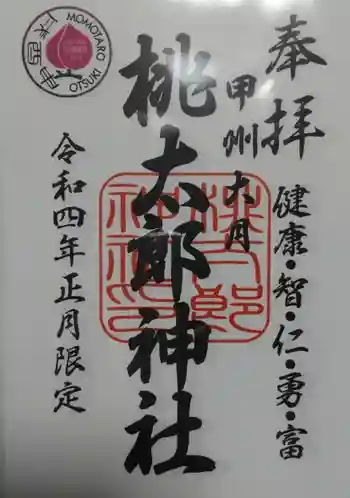 奉拝
健康・智・仁・勇・富
甲州大月
桃太郎神社
桃太郎
神社印
令和四年正月限定
MOMOTARO
OTSUKI